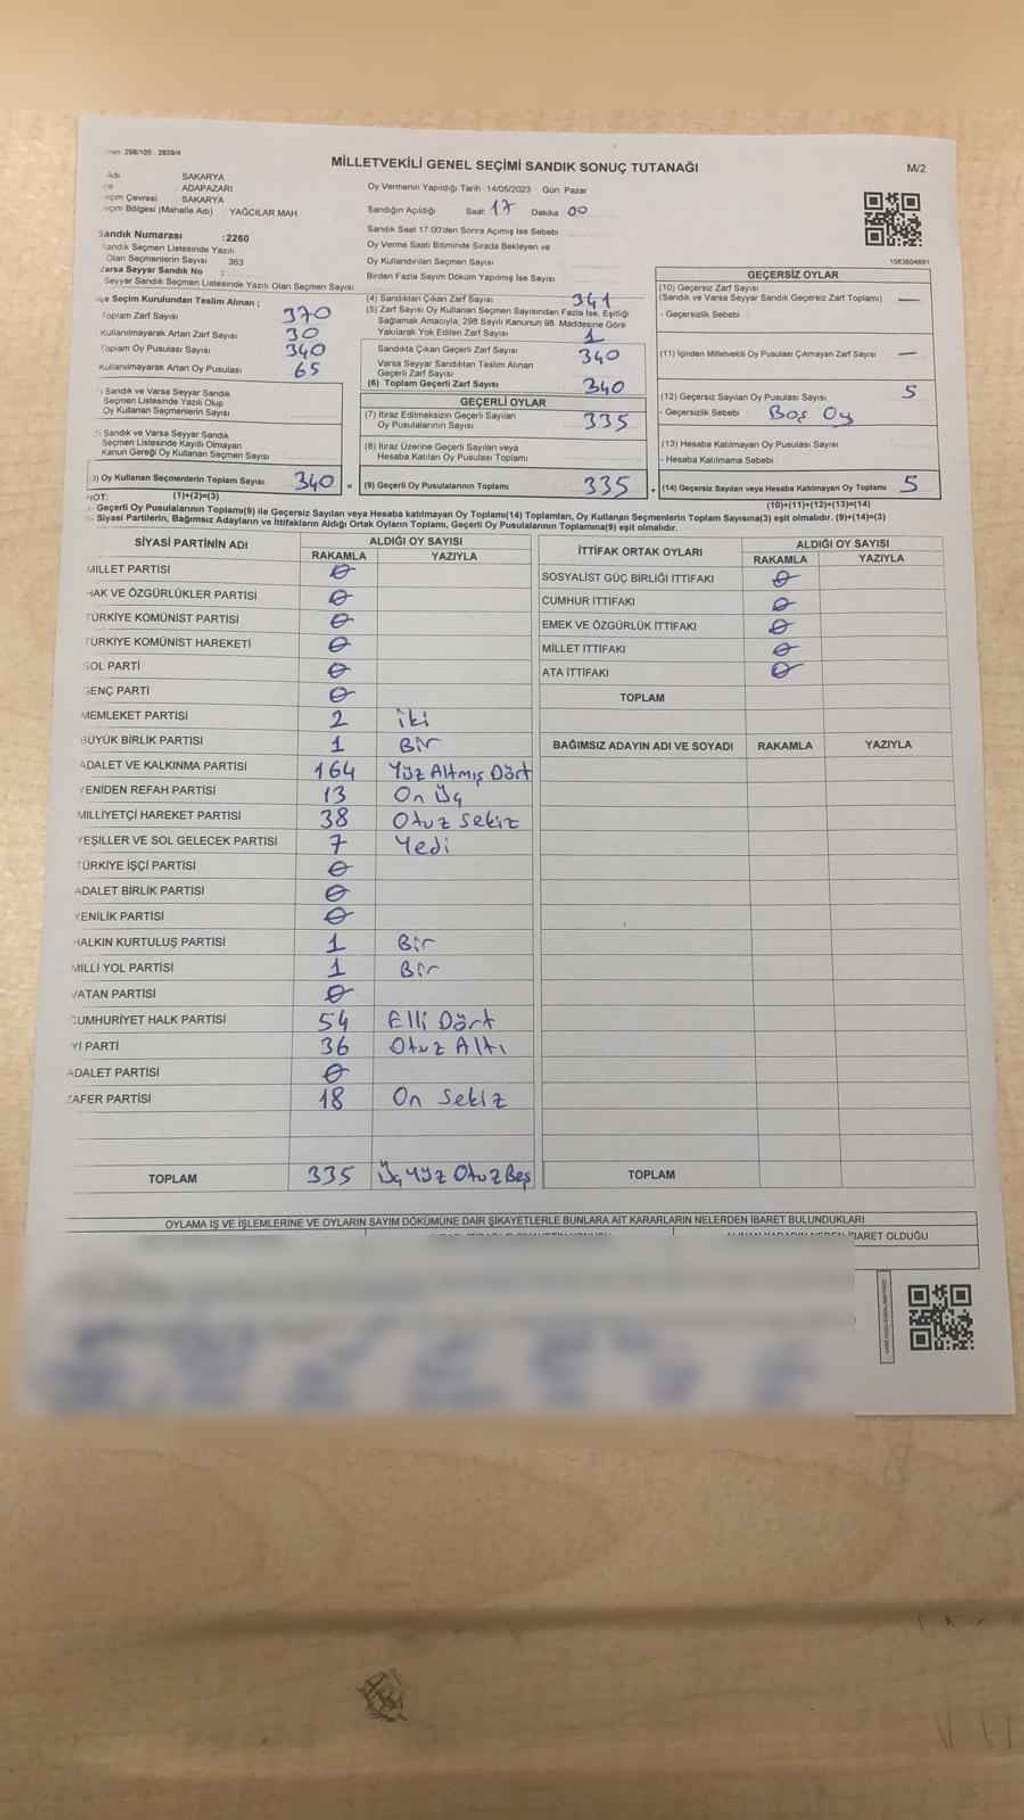 298/109 - 2839/4
MİLLETVEKİLİ GENEL SEÇİMİ SANDIK SONUÇ TUTANAĞI
M/2
SAKARYA
ADAPAZARI
Çevresi SAKARYA
Bölgesi (Mahalle Adı) YAĞCILAR MAH.
Oy Vermenin Yapıldığı Tarih 14/05/2023 Gün Pazar
Sandığın Açıldığı Saat 17 Dakika 00
Sandık Numarası :2260
Sandık Seçmen Listesinde Yazılı
Olan Seçmenlerin Sayısı 363
Varsa Seyyar Sandık No :
Seyyar Sandık Seçmen Listesinde Yazılı Olan Seçmen Sayısı
Sandık Saat 17.00'den Sonra Açılmış İse Sebebi
Oy Verme Saati Bitiminde Sırada Bekleyen ve
Oy Kullandırılan Seçmen Sayısı
Birden Fazla Sayım Döküm Yapılmış İse Sayısı
Seçim Kurulundan Teslim Alınan ;
Toplam Zarf Sayısı 370
Kullanılmayarak Artan Zarf Sayısı 30
Toplam Oy Pusulası Sayısı 340
Kullanılmayarak Artan Oy Pusulası 65
Sandık ve Varsa Seyyar Sandık
Seçmen Listesinde Yazılı Olup
Oy Kullanan Seçmenlerin Sayısı
Sandık ve Varsa Seyyar Sandık
Seçmen Listesinde Kayıtlı Olmayan
Kanun Gereği Oy Kullanan Seçmen Sayısı
3) Oy Kullanan Seçmenlerin Toplam Sayısı 340 =
(4) Sandıktan Çıkan Zarf Sayısı 341
(5) Zarf Sayısı Oy Kullanan Seçmen Sayısından Fazla İse, Eşitliği
Sağlamak Amacıyla, 298 Sayılı Kanunun 98. Maddesine Göre
Yakılarak Yok Edilen Zarf Sayısı 1
Sandıkta Çıkan Geçerli Zarf Sayısı 340
Varsa Seyyar Sandıktan Teslim Alınan
Geçerli Zarf Sayısı
(6) Toplam Geçerli Zarf Sayısı 340
GEÇERLİ OYLAR
(7) İtiraz Edilmeksizin Geçerli Sayılan
Oy Pusulalarının Sayısı 335
(8) İtiraz Üzerine Geçerli Sayılan veya
Hesaba Katılan Oy Pusulası Toplamı
(9) Geçerli Oy Pusulalarının Toplamı 335 +
GEÇERSİZ OYLAR
(10) Geçersiz Zarf Sayısı
(Sandık ve Varsa Seyyar Sandık Geçersiz Zarf Toplamı) —
- Geçersizlik Sebebi
(11) İçinden Milletvekili Oy Pusulası Çıkmayan Zarf Sayısı —
(12) Geçersiz Sayılan Oy Pusulası Sayısı 5
- Geçersizlik Sebebi Boş Oy
(13) Hesaba Katılmayan Oy Pusulası Sayısı
- Hesaba Katılmama Sebebi
(14) Geçersiz Sayılan veya Hesaba Katılmayan Oy Toplamı 5
NOT: (1)+(2)=(3)
(10)+(11)+(12)+(13)=(14)
- Geçerli Oy Pusulalarının Toplamı(9) ile Geçersiz Sayılan veya Hesaba katılmayan Oy Toplamı(14) Toplamları, Oy Kullanan Seçmenlerin Toplam Sayısına(3) eşit olmalıdır. (9)+(14)=(3)
- Siyasi Partilerin, Bağımsız Adayların ve İttifakların Aldığı Ortak Oyların Toplamı, Geçerli Oy Pusulalarının Toplamına(9) eşit olmalıdır.
SİYASİ PARTİNİN ADI ALDIĞI OY SAYISI
RAKAMLA YAZIYLA
MİLLET PARTİSİ 0
HAK VE ÖZGÜRLÜKLER PARTİSİ 0
TÜRKİYE KOMÜNİST PARTİSİ 0
TÜRKİYE KOMÜNİST HAREKETİ 0
SOL PARTİ 0
GENÇ PARTİ 0
MEMLEKET PARTİSİ 2 iki
BÜYÜK BİRLİK PARTİSİ 1 Bir
ADALET VE KALKINMA PARTİSİ 164 Yüz Altmış Dört
YENİDEN REFAH PARTİSİ 13 On Üç
MİLLİYETÇİ HAREKET PARTİSİ 38 Otuz Sekiz
YEŞİLLER VE SOL GELECEK PARTİSİ 7 Yedi
TÜRKİYE İŞÇİ PARTİSİ 0
ADALET BİRLİK PARTİSİ 0
YENİLİK PARTİSİ 0
HALKIN KURTULUŞ PARTİSİ 1 Bir
MİLLİ YOL PARTİSİ 1 Bir
VATAN PARTİSİ 0
CUMHURİYET HALK PARTİSİ 54 Elli Dört
İYİ PARTİ 36 Otuz Altı
ADALET PARTİSİ 0
ZAFER PARTİSİ 18 On Sekiz
TOPLAM 335 Üç Yüz Otuz Beş
İTTİFAK ORTAK OYLARI ALDIĞI OY SAYISI
RAKAMLA YAZIYLA
SOSYALİST GÜÇ BİRLİĞİ İTTİFAKI 0
CUMHUR İTTİFAKI 0
EMEK VE ÖZGÜRLÜK İTTİFAKI 0
MİLLET İTTİFAKI 0
ATA İTTİFAKI 0
TOPLAM
BAĞIMSIZ ADAYIN ADI VE SOYADI RAKAMLA YAZIYLA
TOPLAM
OYLAMA İŞ VE İŞLEMLERİNE VE OYLARIN SAYIM DÖKÜMÜNE DAİR ŞİKAYETLERLE BUNLARA AİT KARARLARIN NELERDEN İBARET BULUNDUKLARI
İBARET OLDUĞU